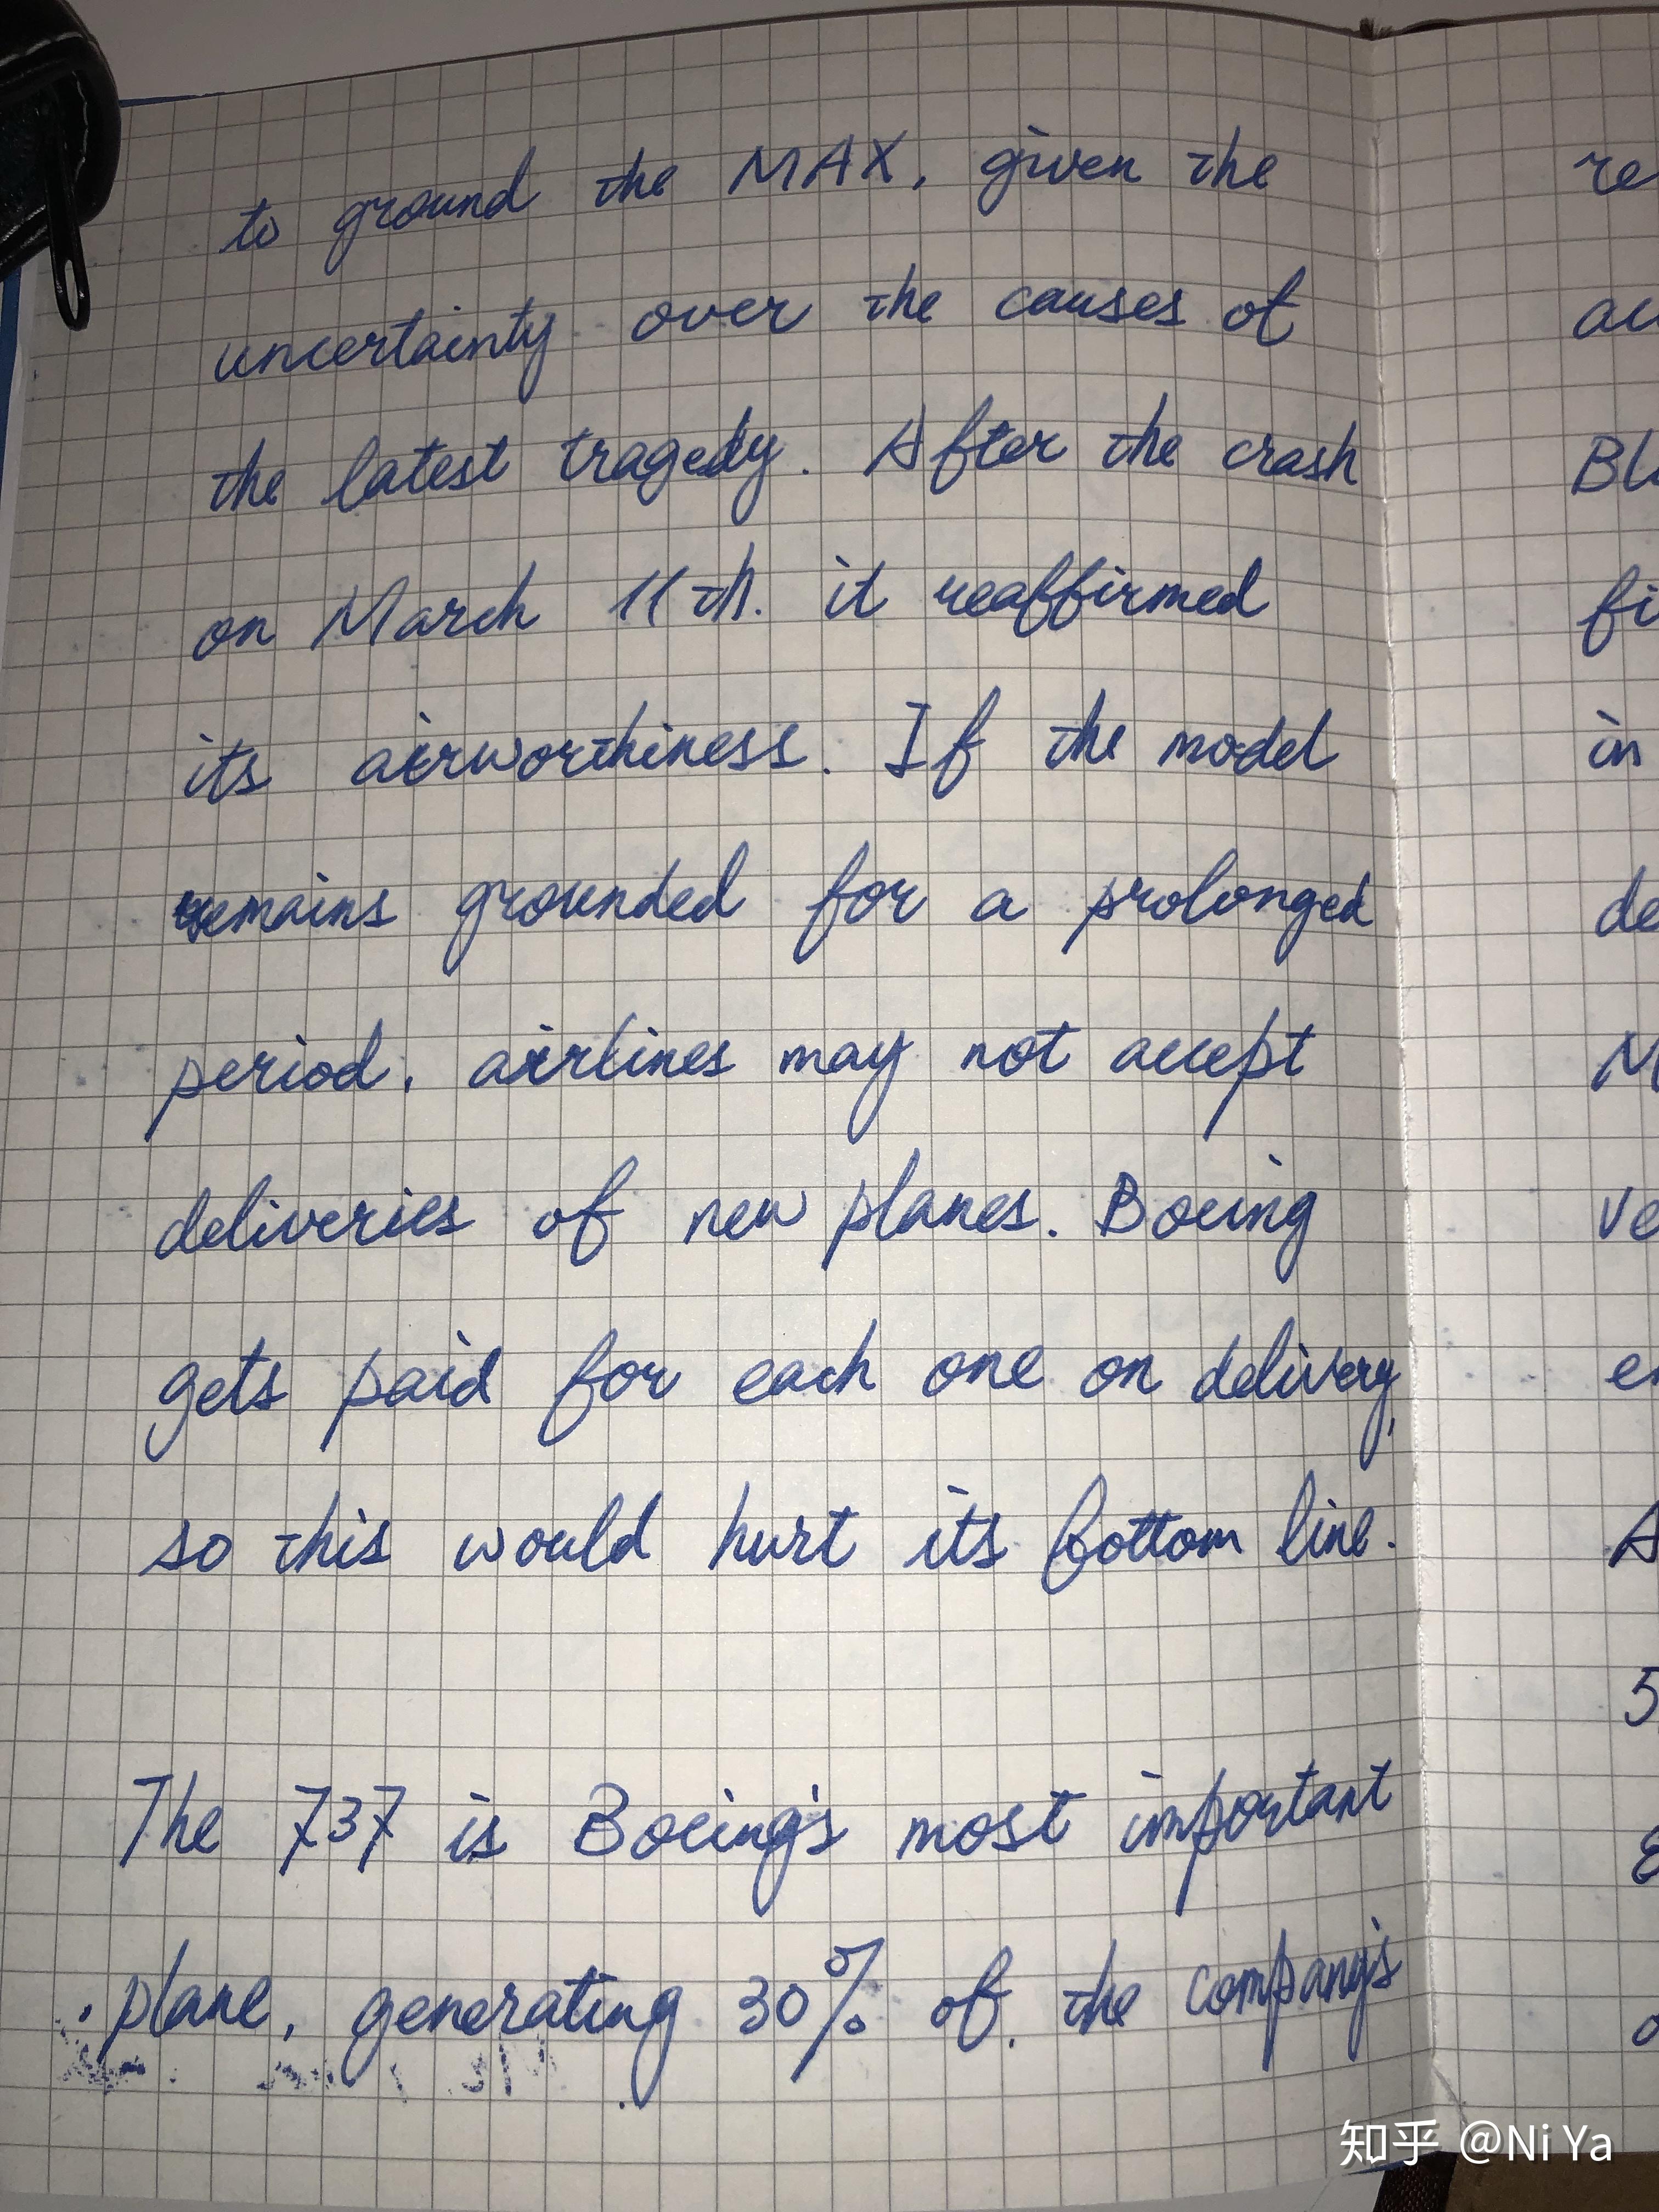 to ground the MAX, given the
uncertainty over the causes of
the latest tragedy. After the crash
on March 11th. it reaffirmed
its airworthiness. If the model
remains grounded for a prolonged
period, airlines may not accept
deliveries of new planes. Boeing
gets paid for each one on delivery,
so this would hurt its bottom line.
The 737 is Boeing's most important
plane, generating 30% of. the company's
re
au
Bl
fi
in
de
M
ve
er
A
5
知乎 @Ni Ya